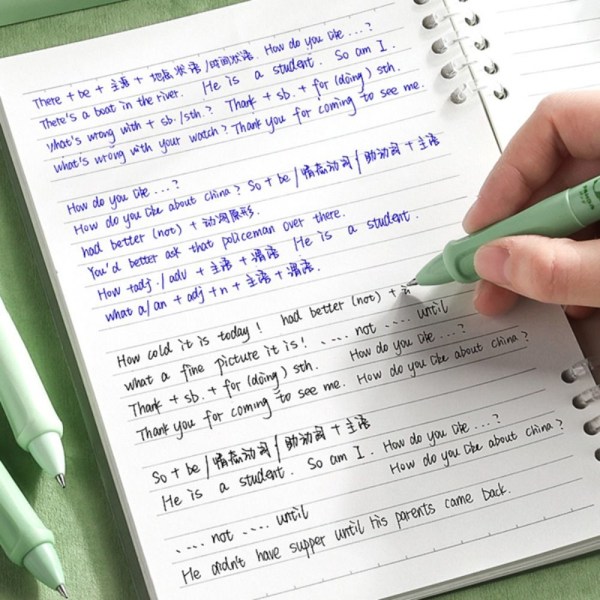 There + be + 主语 + 地点状语/时间状语. How do you like...?
There's a boat in the river. He is a student. So am I.
What's wrong with + sb./sth.? Thank + sb. + for (doing) sth.
What's wrong with your watch? Thank you for coming to see me.
How do you like...?
How do you like about china? So + be/情态动词/助动词 + 主语
had better (not) + 动词原形.
You'd better ask that policeman over there.
How +adj./adv + 主语 + 谓语 He is a student.
what a/an + adj +n + 主语 + 谓语.
How cold it is today! had better (not) +
what a fine picture it is! .... not .... until
Thank + sb. + for (doing) sth. How do you like...?
Thank you for coming to see me. How do you like about china?
So + be/情态动词/助动词 + 主语
He is a student. So am I. How do you like...?
How do you like about china?
.... not .... until
He didn't have supper until his parents came back.